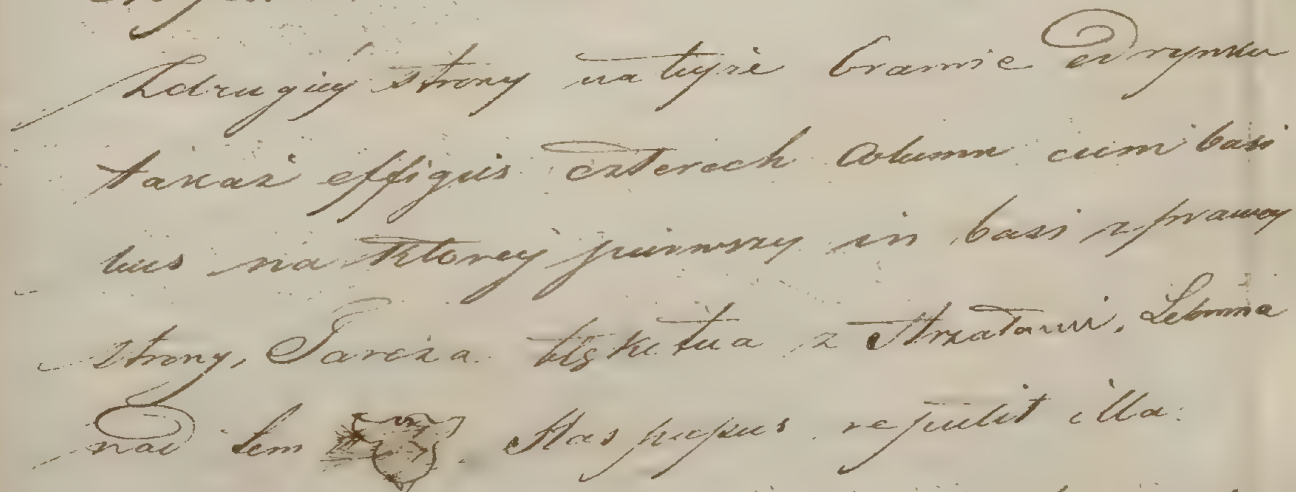 Zdrugiéy strony na teyże bramie od rynku
takaż effigies czterech Column cum basi
bus na ktorey pierwszy in basi z prawey
strony, Tarcza błękitna z Strzałami, Lemma
nad tem Has prepes repulit illa.